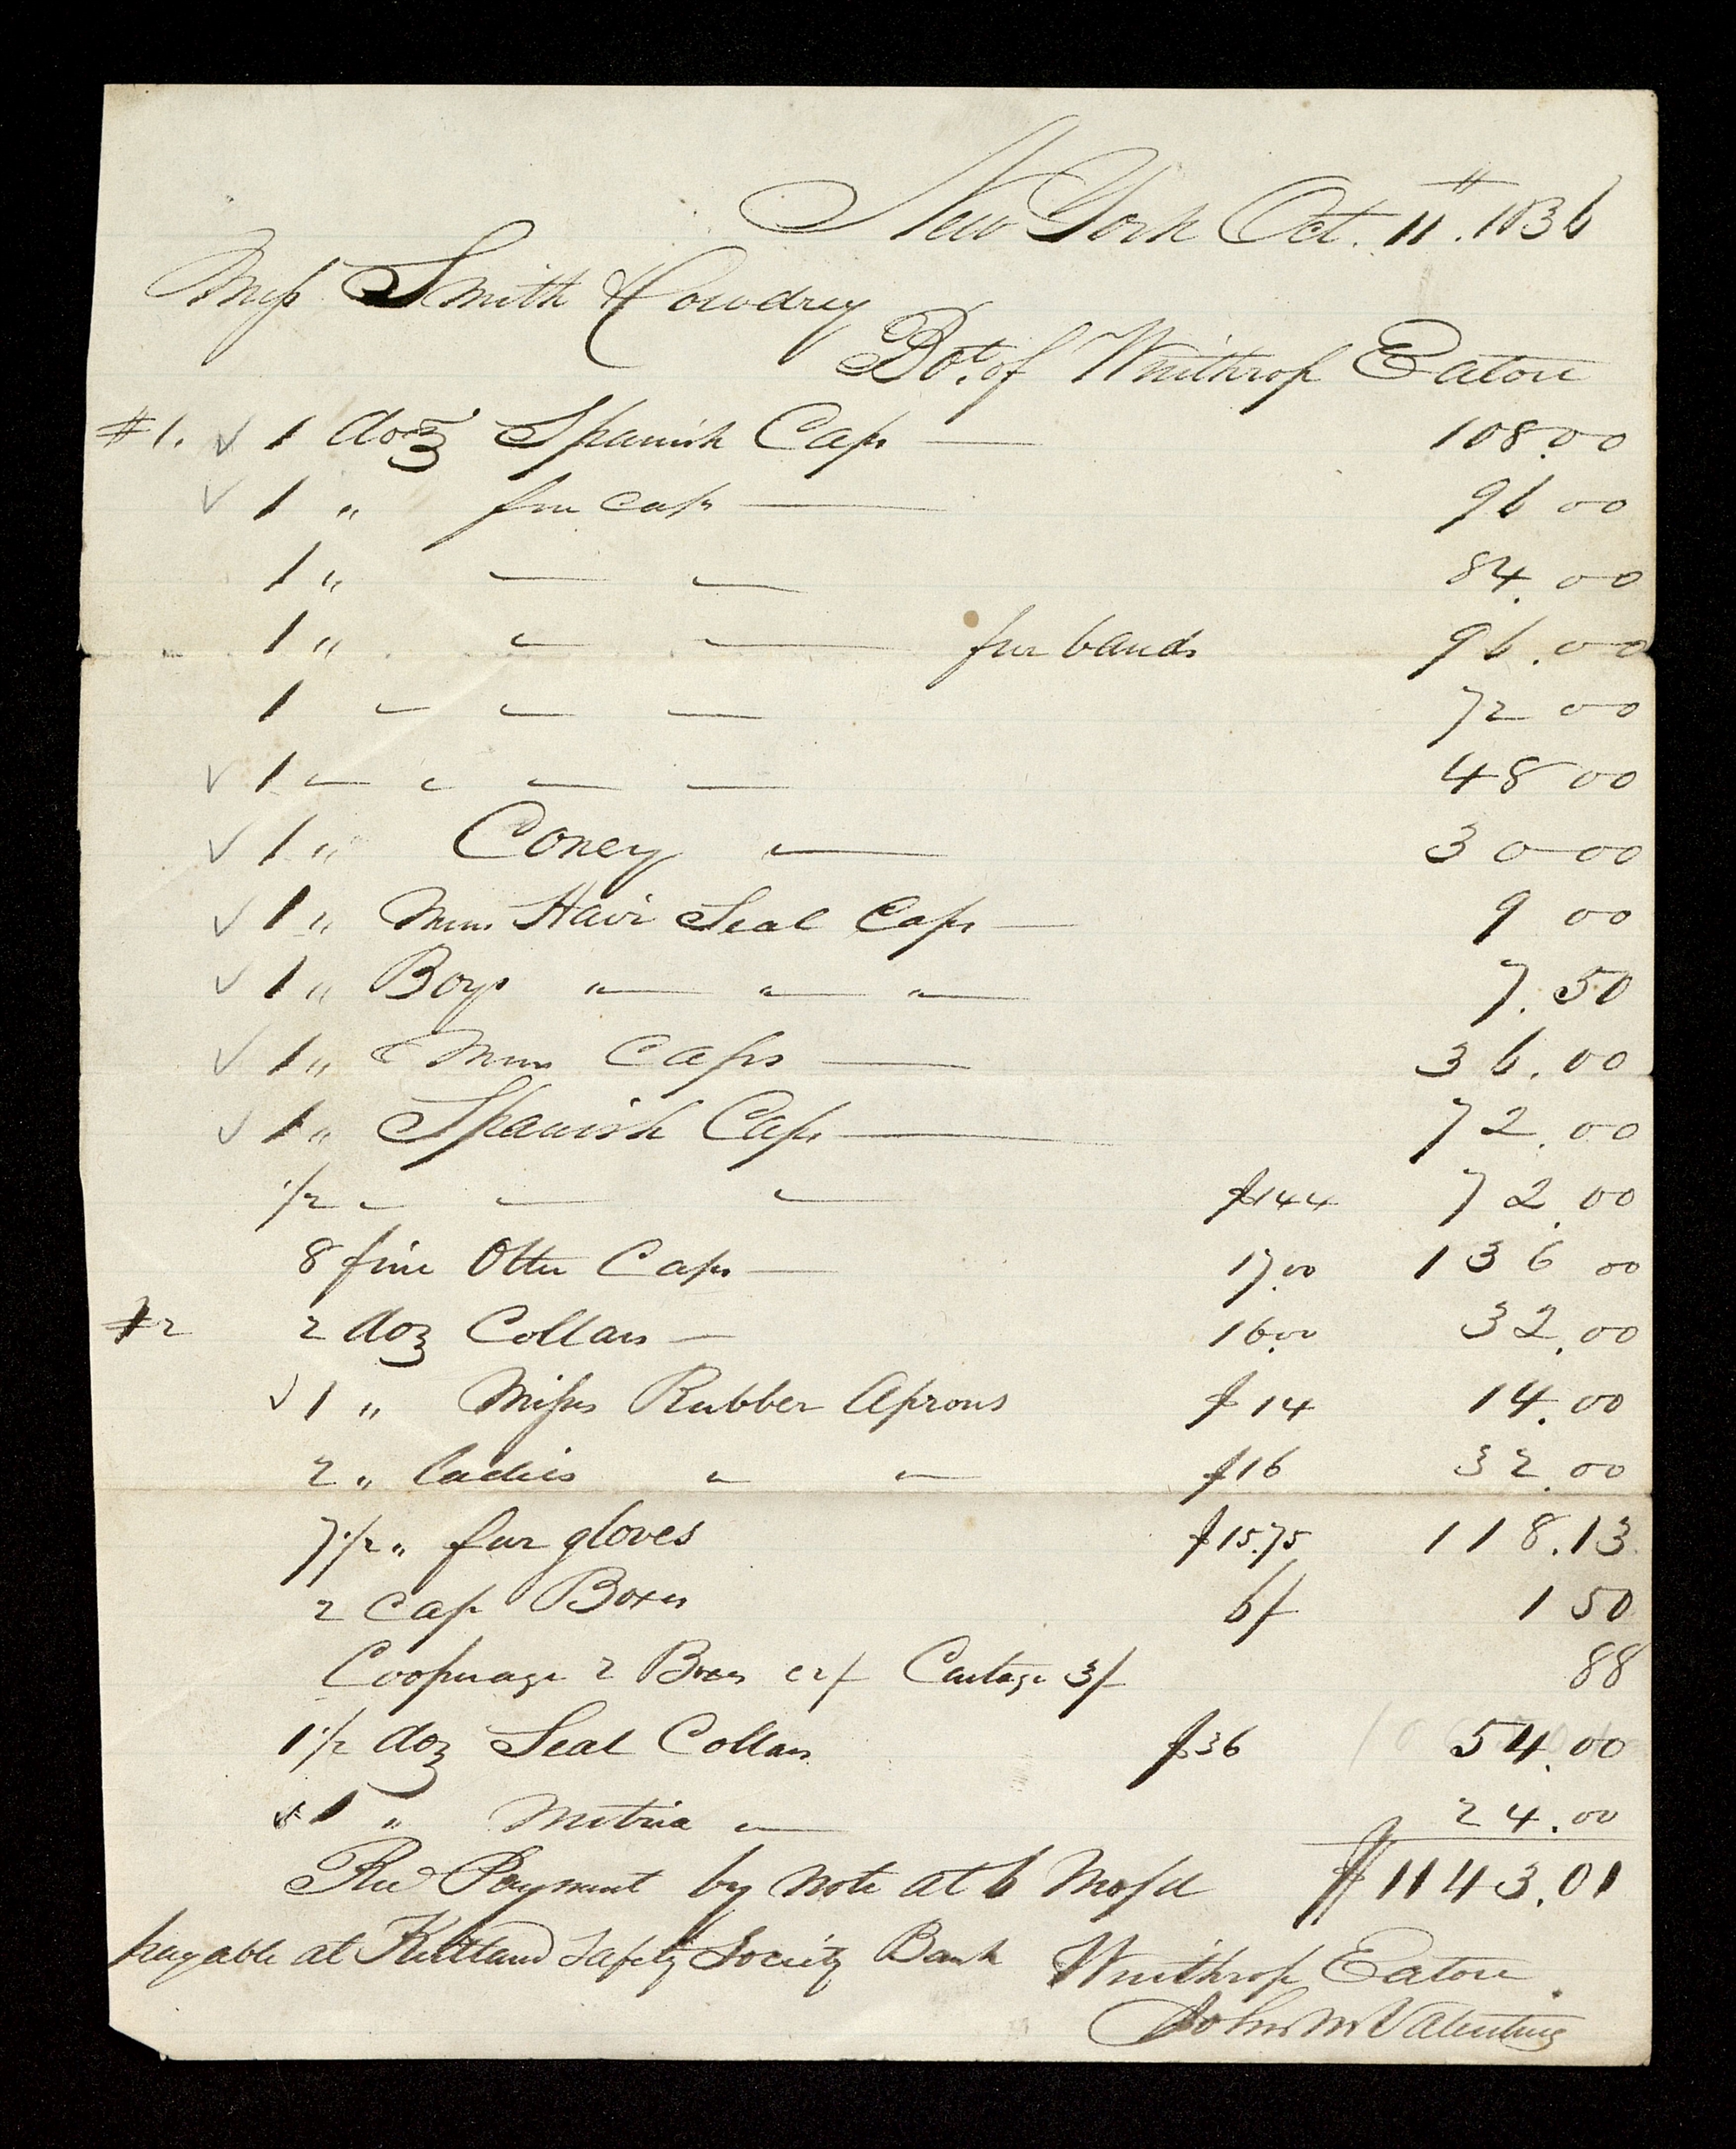 New York Oct. 11th. 1836
Mess. Smith & Cowdrey
Bot. of Winthrop Eaton
#1. ✓ 1 doz Spanish Caps — 108.00
✓ 1 " fur caps — 96 00
1 " — — 84.00
1 " — — fur bands 96.00
1 — — — 72 00
✓ 1 — — — — 48 00
✓ 1 " Coney — 30 00
✓ 1 " Mens Hair Seal Caps — 9 00
✓ 1 " Boys " " " 7.50
✓ 1 " Mens Caps — 36.00
✓ 1 " Spanish Caps — 72.00
1/2 — — — $144 72.00
8 fine Otter Caps — 17.00 136 00
#2 2 doz Collars — 16.00 32.00
✓ 1 " Misses Rubber Aprons $14 14.00
2 " Ladies " " $16 32.00
7 1/2 " fur gloves $15.75 118.13
2 Cap Boxes 6/ 1 50
Cooperage 2 Boxes 2/ Cartage 3/ 88
1 1/2 doz Seal Collars $36 54.00
✓ 1 " Nutria — 24.00
Recd Payment by note at 6 Mos $1143.01
payable at Kirtland Safety Society Bank Winthrop Eaton
John M Valentine